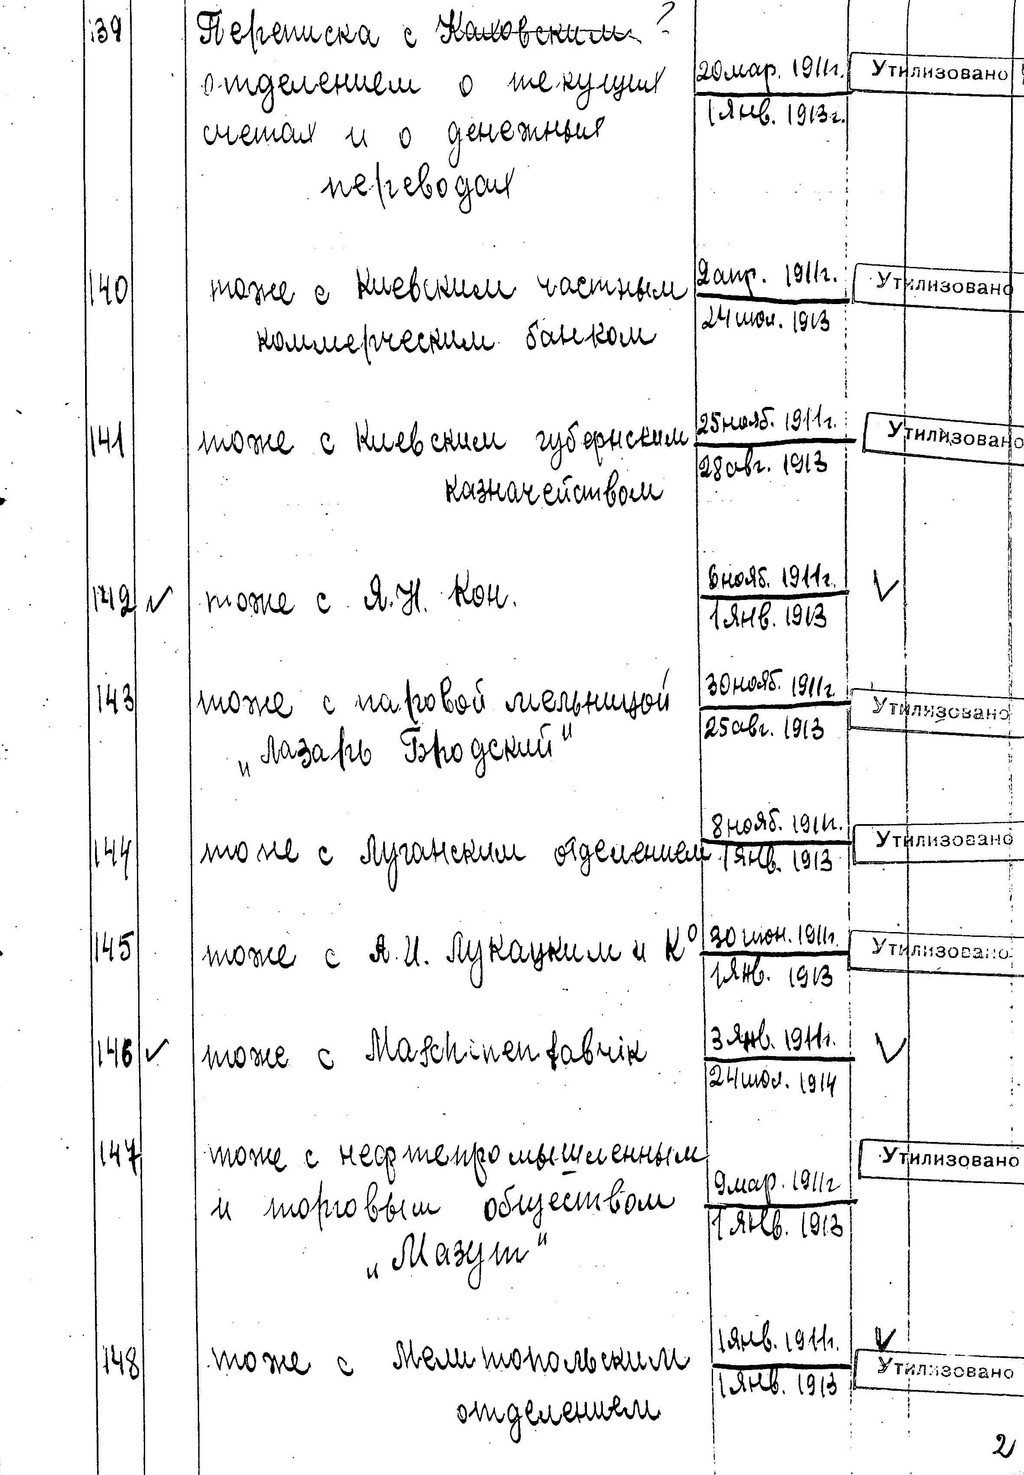 139 Переписка с Каховским ?
отделением о текущих
счетах и о денежных
переводах
20 мар. 1911г.
1 янв. 1913г.
Утилизовано
140 тоже с Киевским частным
коммерческим банком
2 апр. 1911г.
24 июл. 1913
Утилизовано
141 тоже с Киевским губернским
казначейством
25 нояб. 1911г.
28 авг. 1913
Утилизовано
142 тоже с Я.Н. Кон.
6 нояб. 1911г.
1 янв. 1913
143 тоже с паровой мельницой
„Лазарь Бродский"
30 нояб. 1911г
25 авг. 1913
Утилизовано
144 тоже с Луганским отделением
8 нояб. 1911г.
1 янв. 1913
Утилизовано
145 тоже с А.И. Лукацким и К⁰
30 июн. 1911г.
1 янв. 1913
Утилизовано
146 тоже с Maschinenfabrik
3 янв. 1911г.
24 июл. 1914
147 тоже с нефтепромышленным
и торговым обществом
„Мазут"
9 мар. 1911г
1 янв. 1913
Утилизовано
148 тоже с Мелитопольским
отделением
1 янв. 1911г.
1 янв. 1913
Утилизовано
2